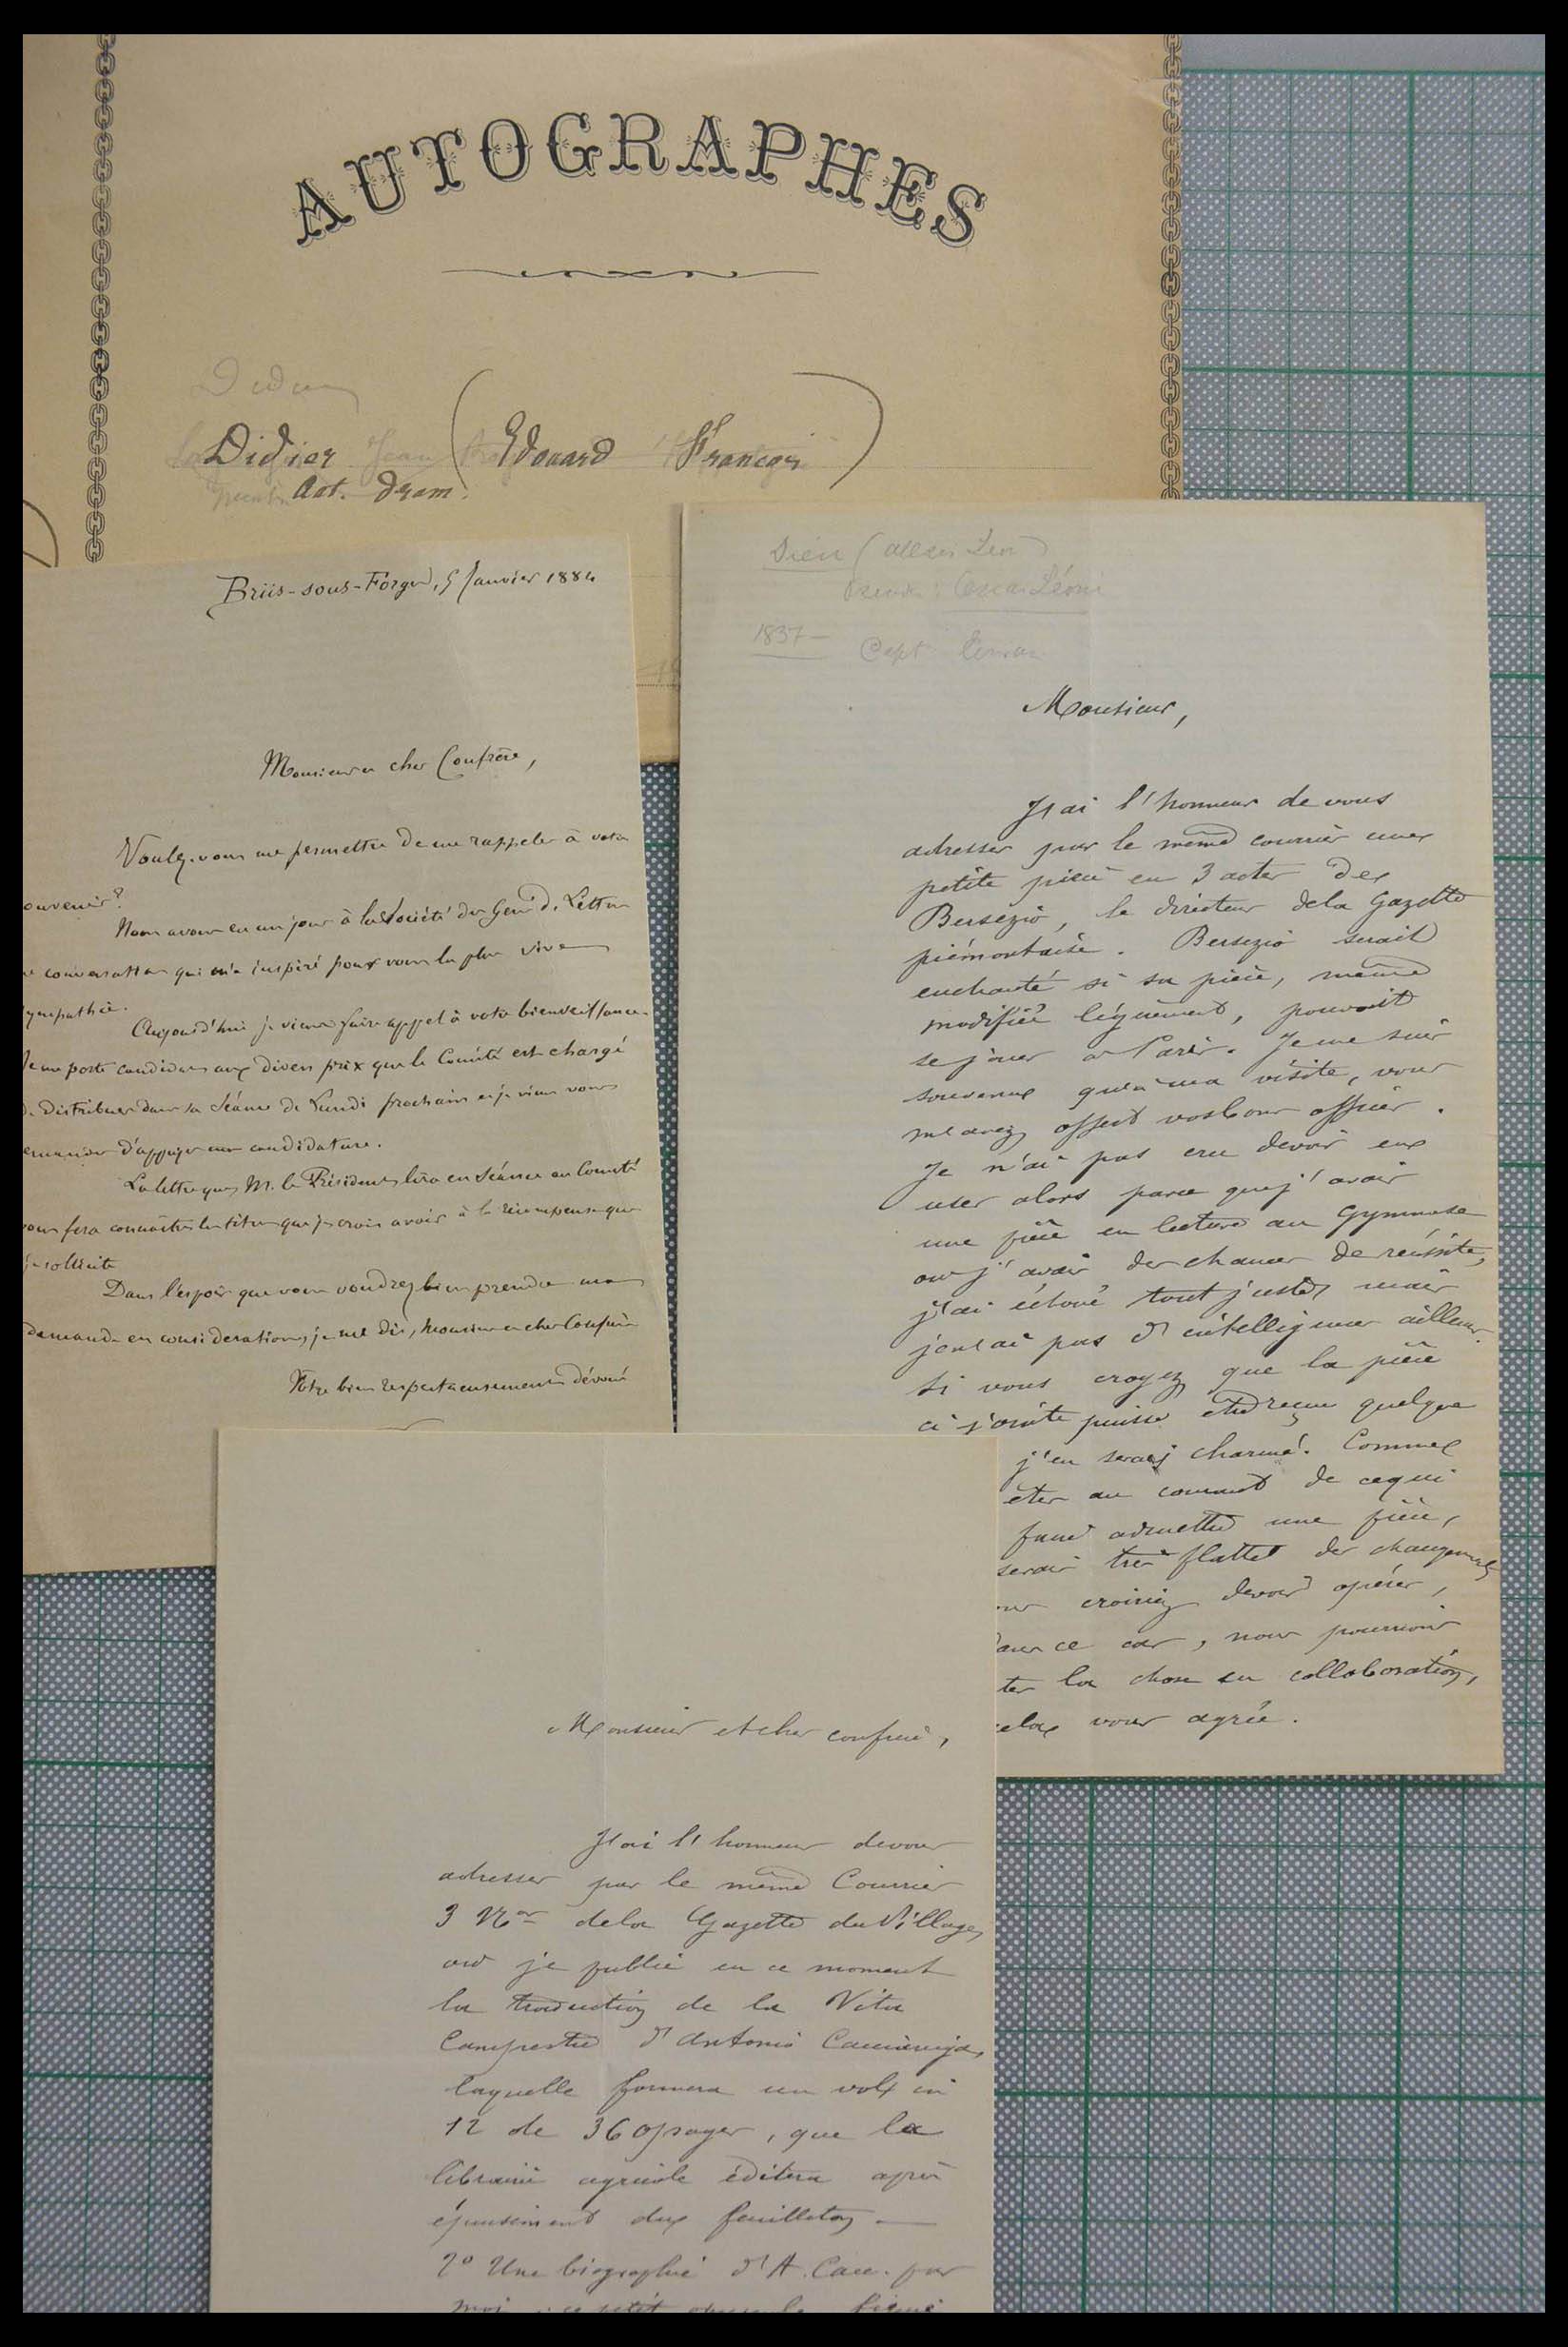 AUTOGRAPHES
Didier (Edouard Français)
Aut. Dram.
Briis-sous-Forges, 5 Janvier 1884
Monsieur et cher Confrère,
Voulez-vous me permettre de me rappeler à votre
ouvenir?
Nous avons eu un jour à la Société des Gens d. Lettres
e conversation qui m'a inspiré pour vous la plus vive
ympathie.
Aujourd'hui je viens faire appel à votre bienveillance.
Je me porte candidat aux divers prix que le Comité est chargé
de distribuer dans sa Séance de Lundi prochain et je viens vous
d'appuyer ma candidature.
La lettre que M. le Président lira en Séance au Comité
ous fera connaître les titres que je crois avoir à la récompense que
je sollicite
Dans l'espoir que vous voudrez bien prendre ma
demande en considération, je me dis, Monsieur et cher Confrère
Votre bien respectueusement dévoué
Dieu (
1837 —
Capt.
Monsieur,
J'ai l'honneur de vous
adresser par le même courrier une
petite pièce en 3 actes de
Bersezio, le directeur de la Gazette
piémontaise. Bersezio serait
enchanté si sa pièce, même
modifiée légèrement, pouvait
se jouer à Paris. Je me suis
souvenu qu'à ma visite, vous
m'avez offert vos bons offices.
Je n'ai pas cru devoir en
user alors parce que j'avais
une pièce en lecture au Gymnase
où j'avais des chances de réussite,
j'ai échoué tout juste, mais
je n'ai pas d'intelligences ailleurs.
Si vous croyez que la pièce
ci jointe puisse être reçue quelque
j'en serais charmé. Comme
êtes au courant de ce qui
faire admettre une pièce,
serais très flatté des changements
croiriez devoir opérer,
ans ce cas, nous pourrions
ter la chose en collaboration,
cela vous agrée.
Monsieur et cher confrère,
J'ai l'honneur de vous
adresser par le même Courrier
3 Nos de la Gazette du Village
où je publie en ce moment
la traduction de la Vita
Campestre d'Antonio Caccianiga,
laquelle formera un vol in
12 de 360 pages, que la
librairie agricole éditera après
épuisement du feuilleton —
2° Une biographie d'A. Cacc. par
moi, ce petit opuscule